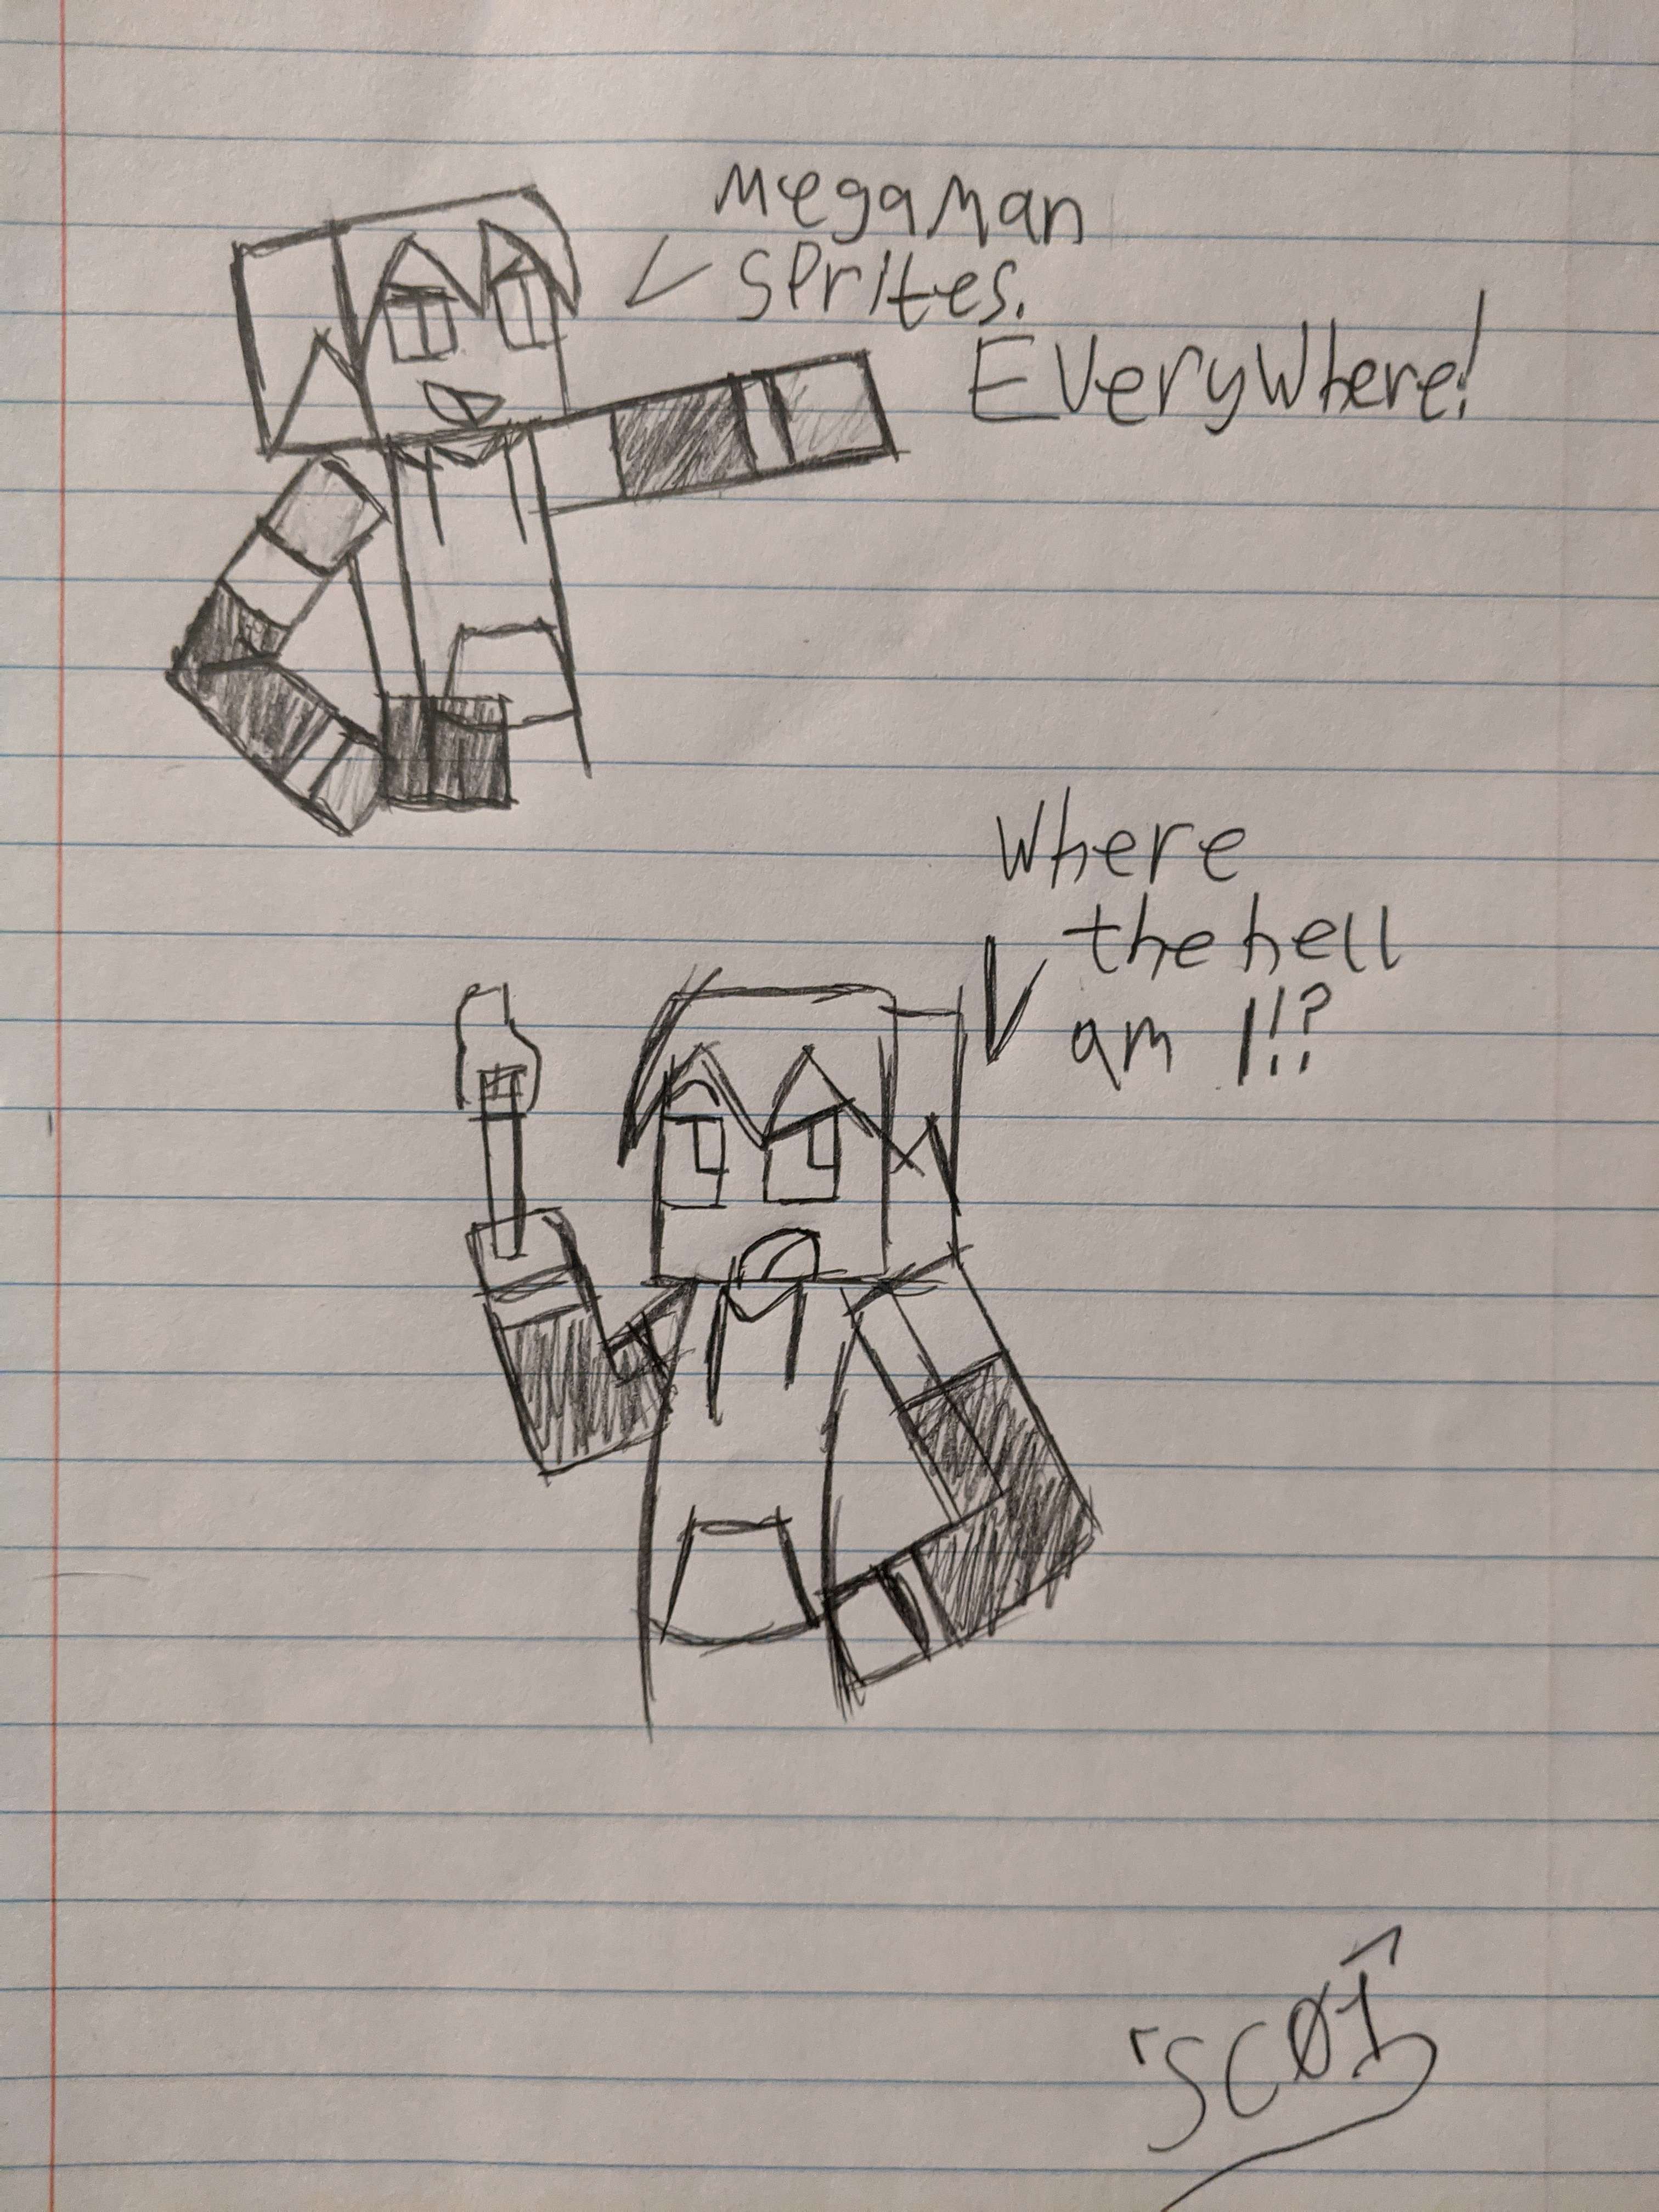 MegaMan
Sprites.
EVeryWhere!
Where
the hell
am I!!?
'SCØT